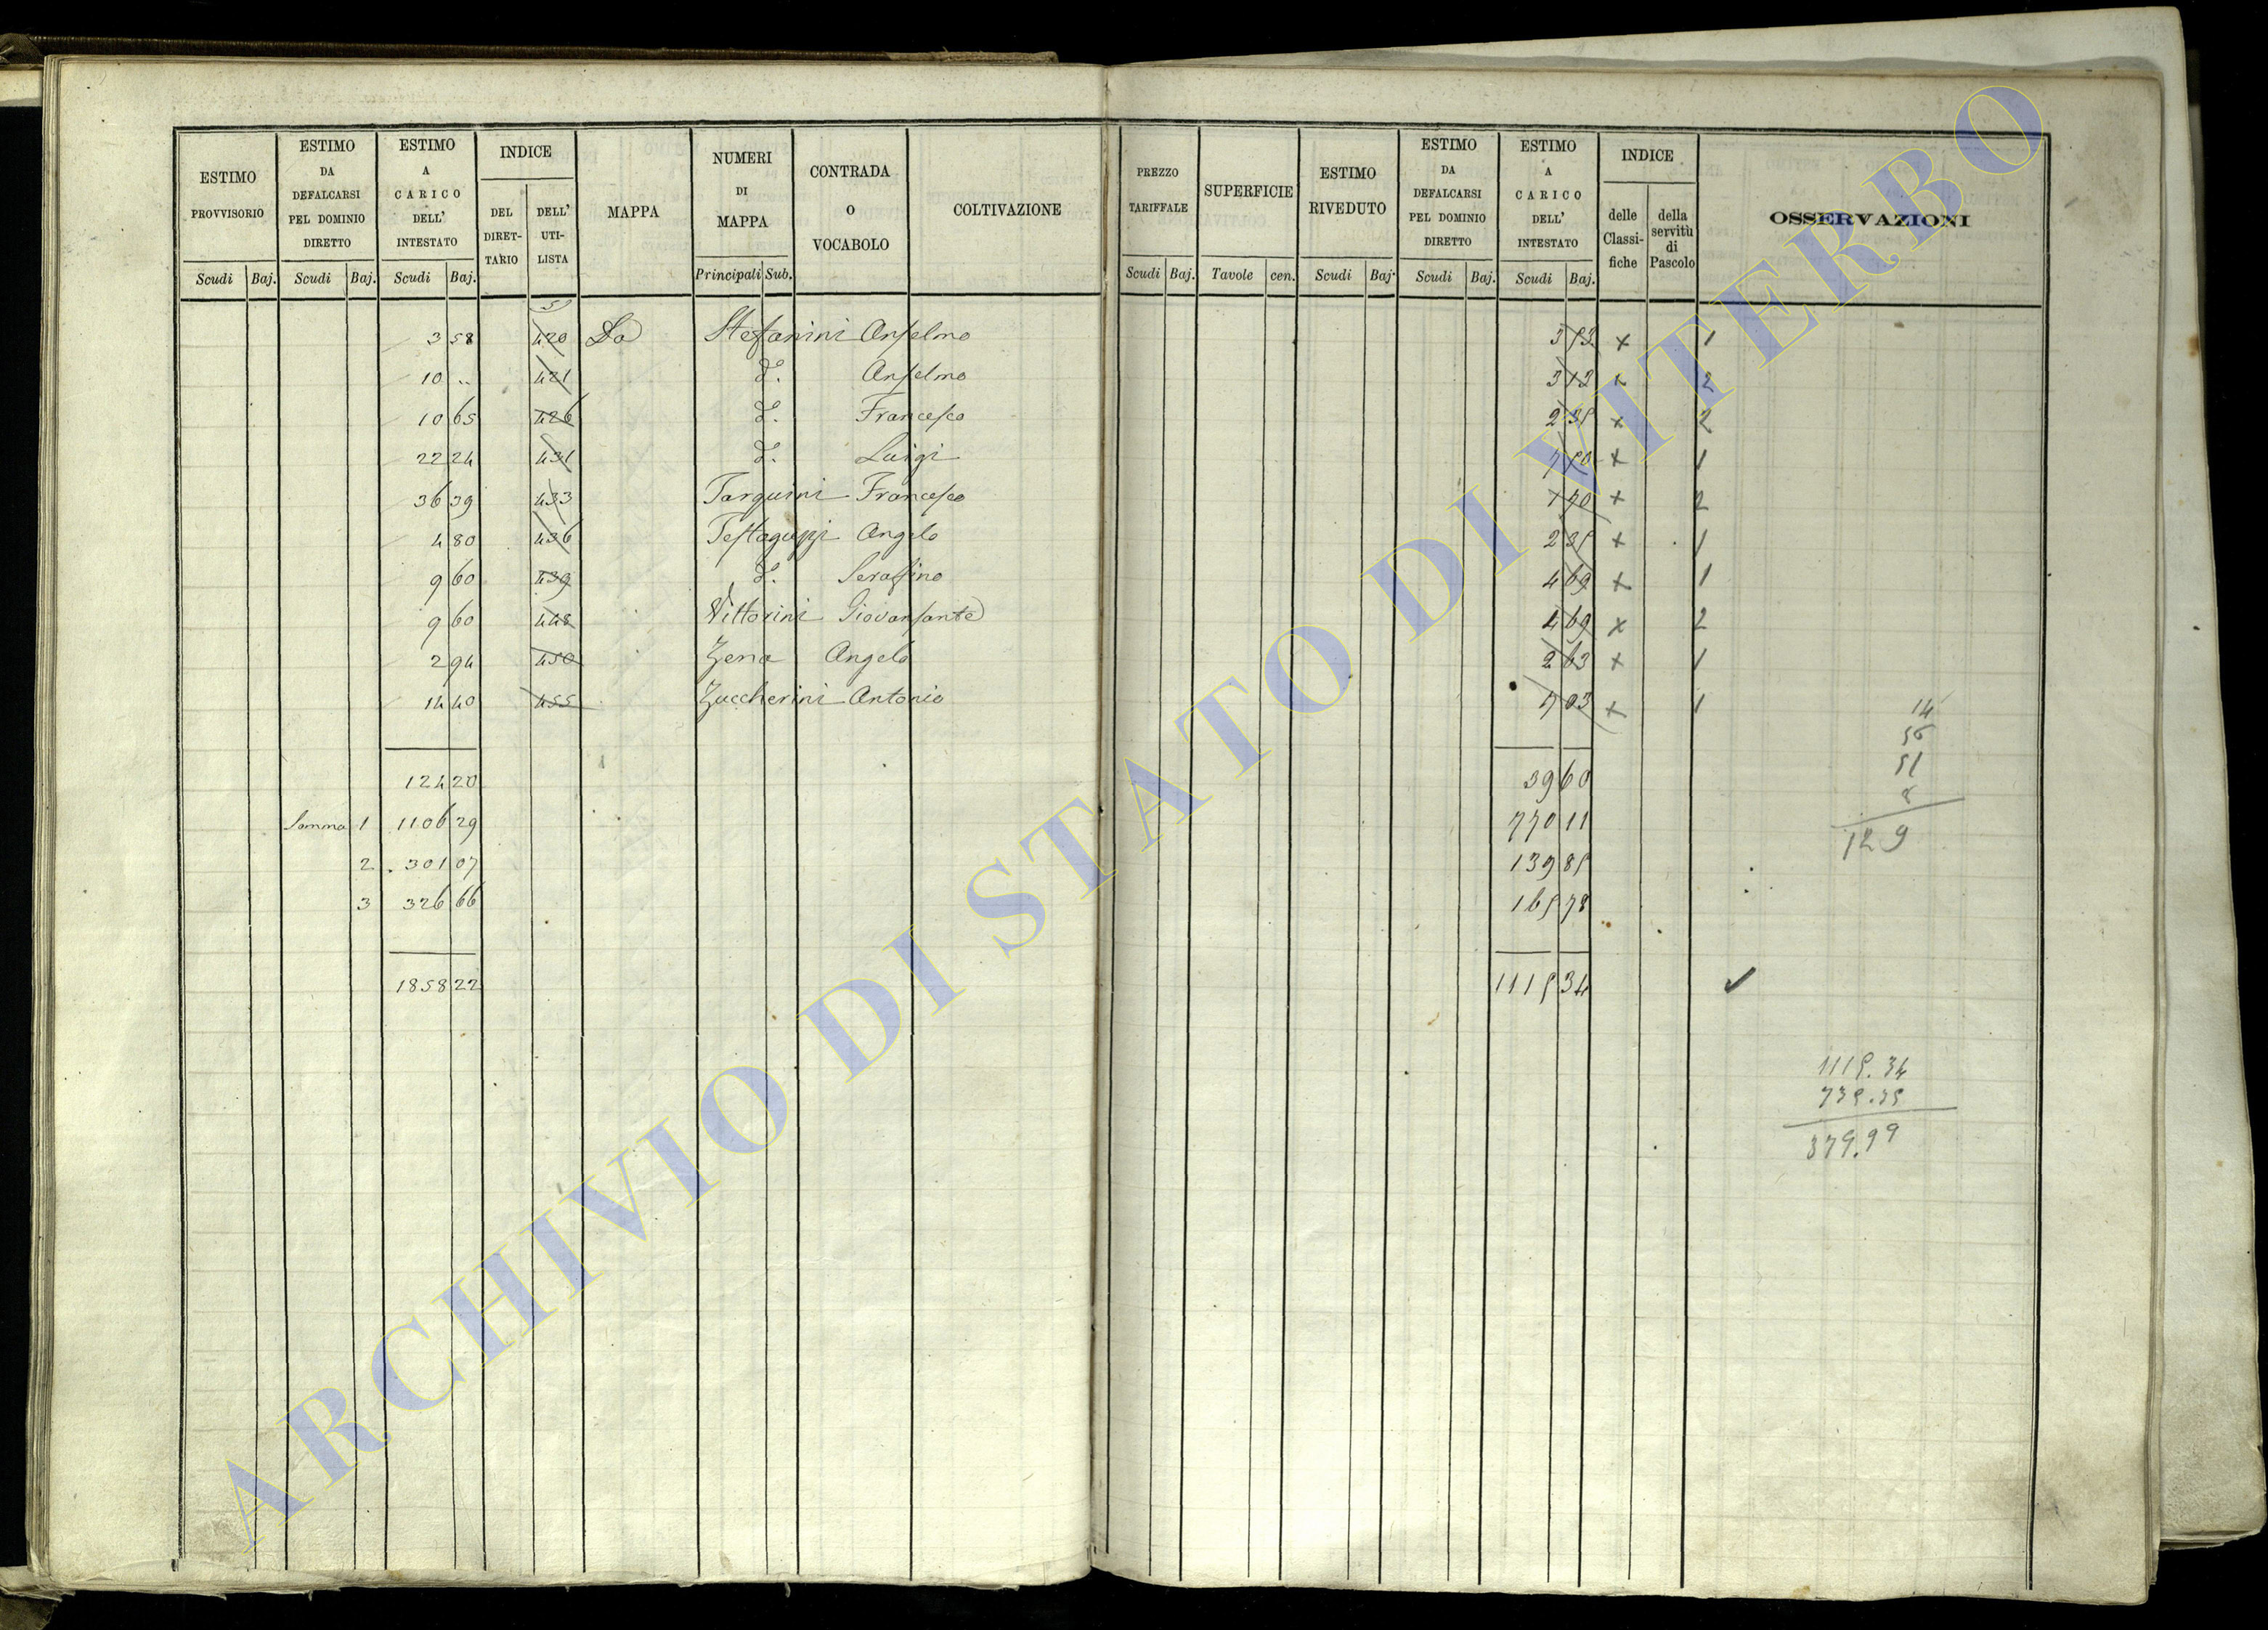 ESTIMO PROVVISORIO Scudi Baj.
ESTIMO DA DEFALCARSI PEL DOMINIO DIRETTO Scudi Baj.
ESTIMO A CARICO DELL' INTESTATO Scudi Baj.
INDICE DEL DIRET-TARIO DELL' UTI-LISTA
MAPPA
NUMERI DI MAPPA Principali Sub.
CONTRADA O VOCABOLO
COLTIVAZIONE
PREZZO TARIFFALE Scudi Baj.
SUPERFICIE Tavole cen.
ESTIMO RIVEDUTO Scudi Baj.
ESTIMO DA DEFALCARSI PEL DOMINIO DIRETTO Scudi Baj.
ESTIMO A CARICO DELL' INTESTATO Scudi Baj.
INDICE delle Classi-fiche della servitù di Pascolo
OSSERVAZIONI
3 58 420 Da Stefanini Anselmo 3 53 x 1
10 .. 421 d.° Anselmo 3 13 x 2
10 65 426 d.° Francesco 2 35 x 2
22 24 431 d.° Luigi 7 50 x 1
36 39 433 Tarquini Francesco 1 70 x 2
4 80 436 Testaguzzi Angelo 2 35 x 1
9 60 439 d.° Serafino 4 69 x 1
9 60 448 Vittorini Giovansante 4 69 x 2
2 94 450 Zena Angelo 2 63 x 1
14 40 455 Zuccherini Antonio 7 03 x 1
124 20 39 60
Somma 1 1106 29 770 11
2 301 07 139 85
3 326 66 165 78
1858 22 1115 34 ✓
14
56
51
8
129
1115.34
735.35
379.99
ARCHIVIO DI STATO DI VITERBO